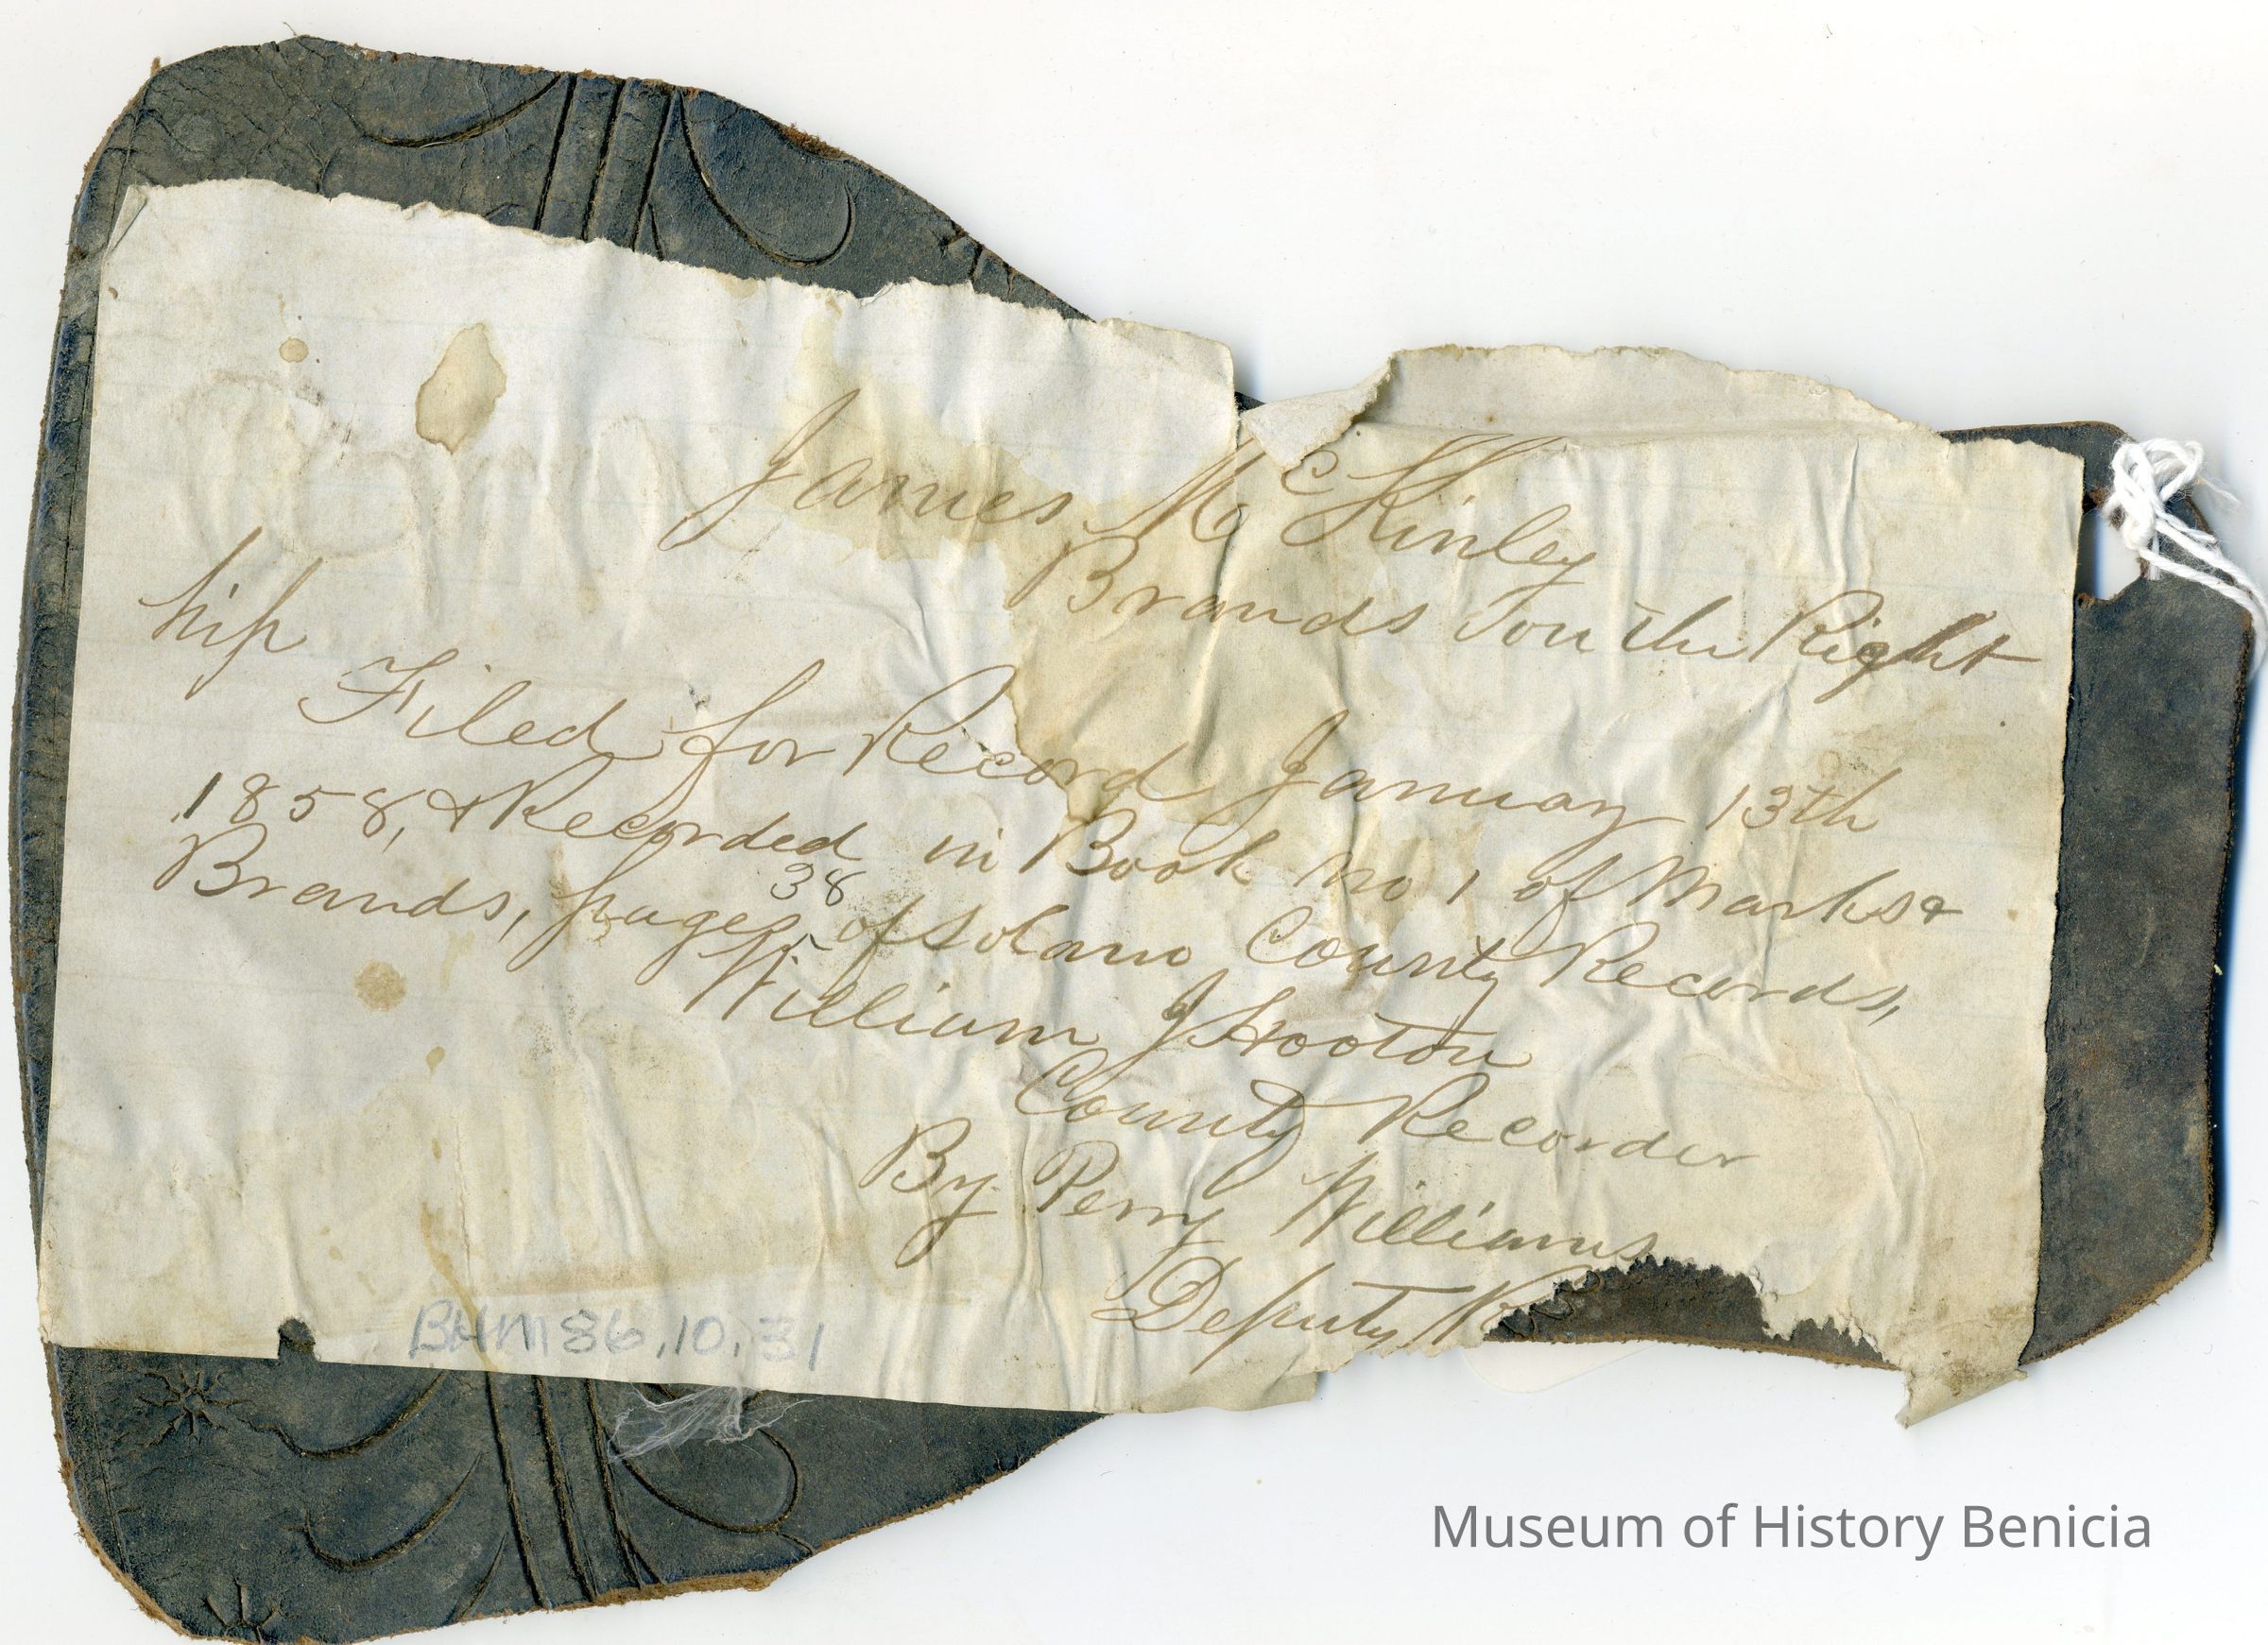 James McKinley
Brands J on the Right
hip
Filed for Record January 13th
1858, & Recorded in Book No 1 of Marks &
Brands, page 38 of Solano County Records,
William J Hooton
County Recorder
By Perry Williams
Deputy R
BHM 86.10.31
Museum of History Benicia